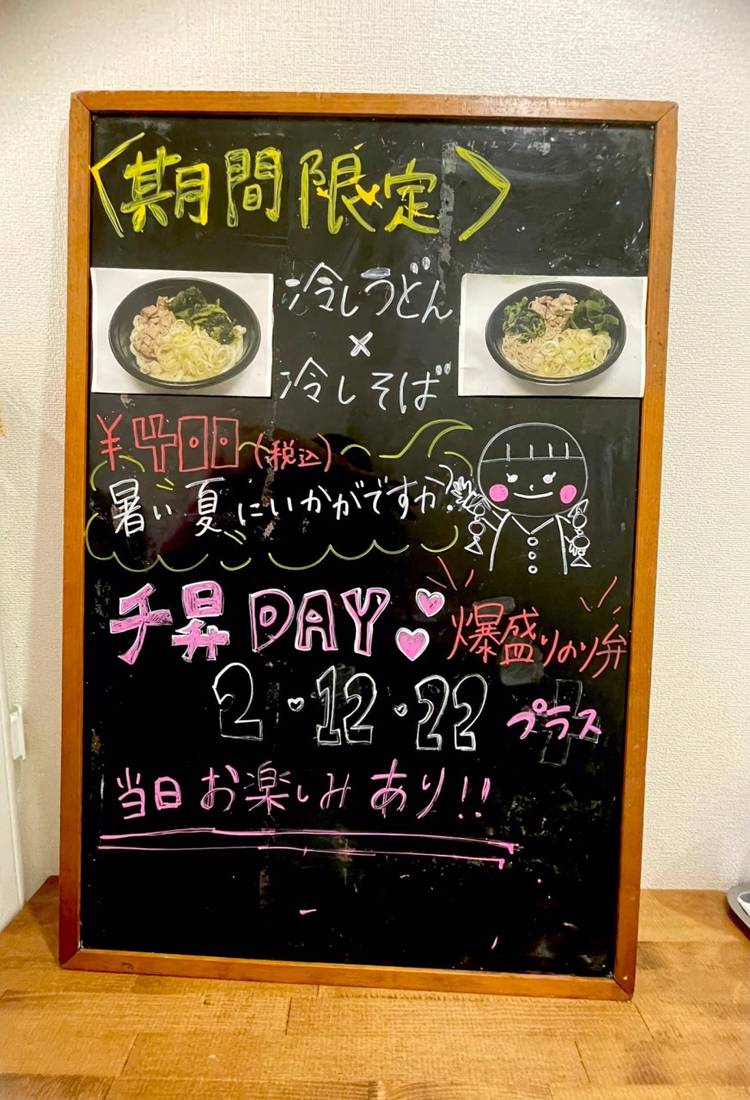 〈期間限定〉
冷しうどん
×
冷しそば
¥400(税込)
暑い夏にいかがですか?
千昇DAY
爆盛りのり弁
2・12・22
プラス
当日お楽しみあり!!